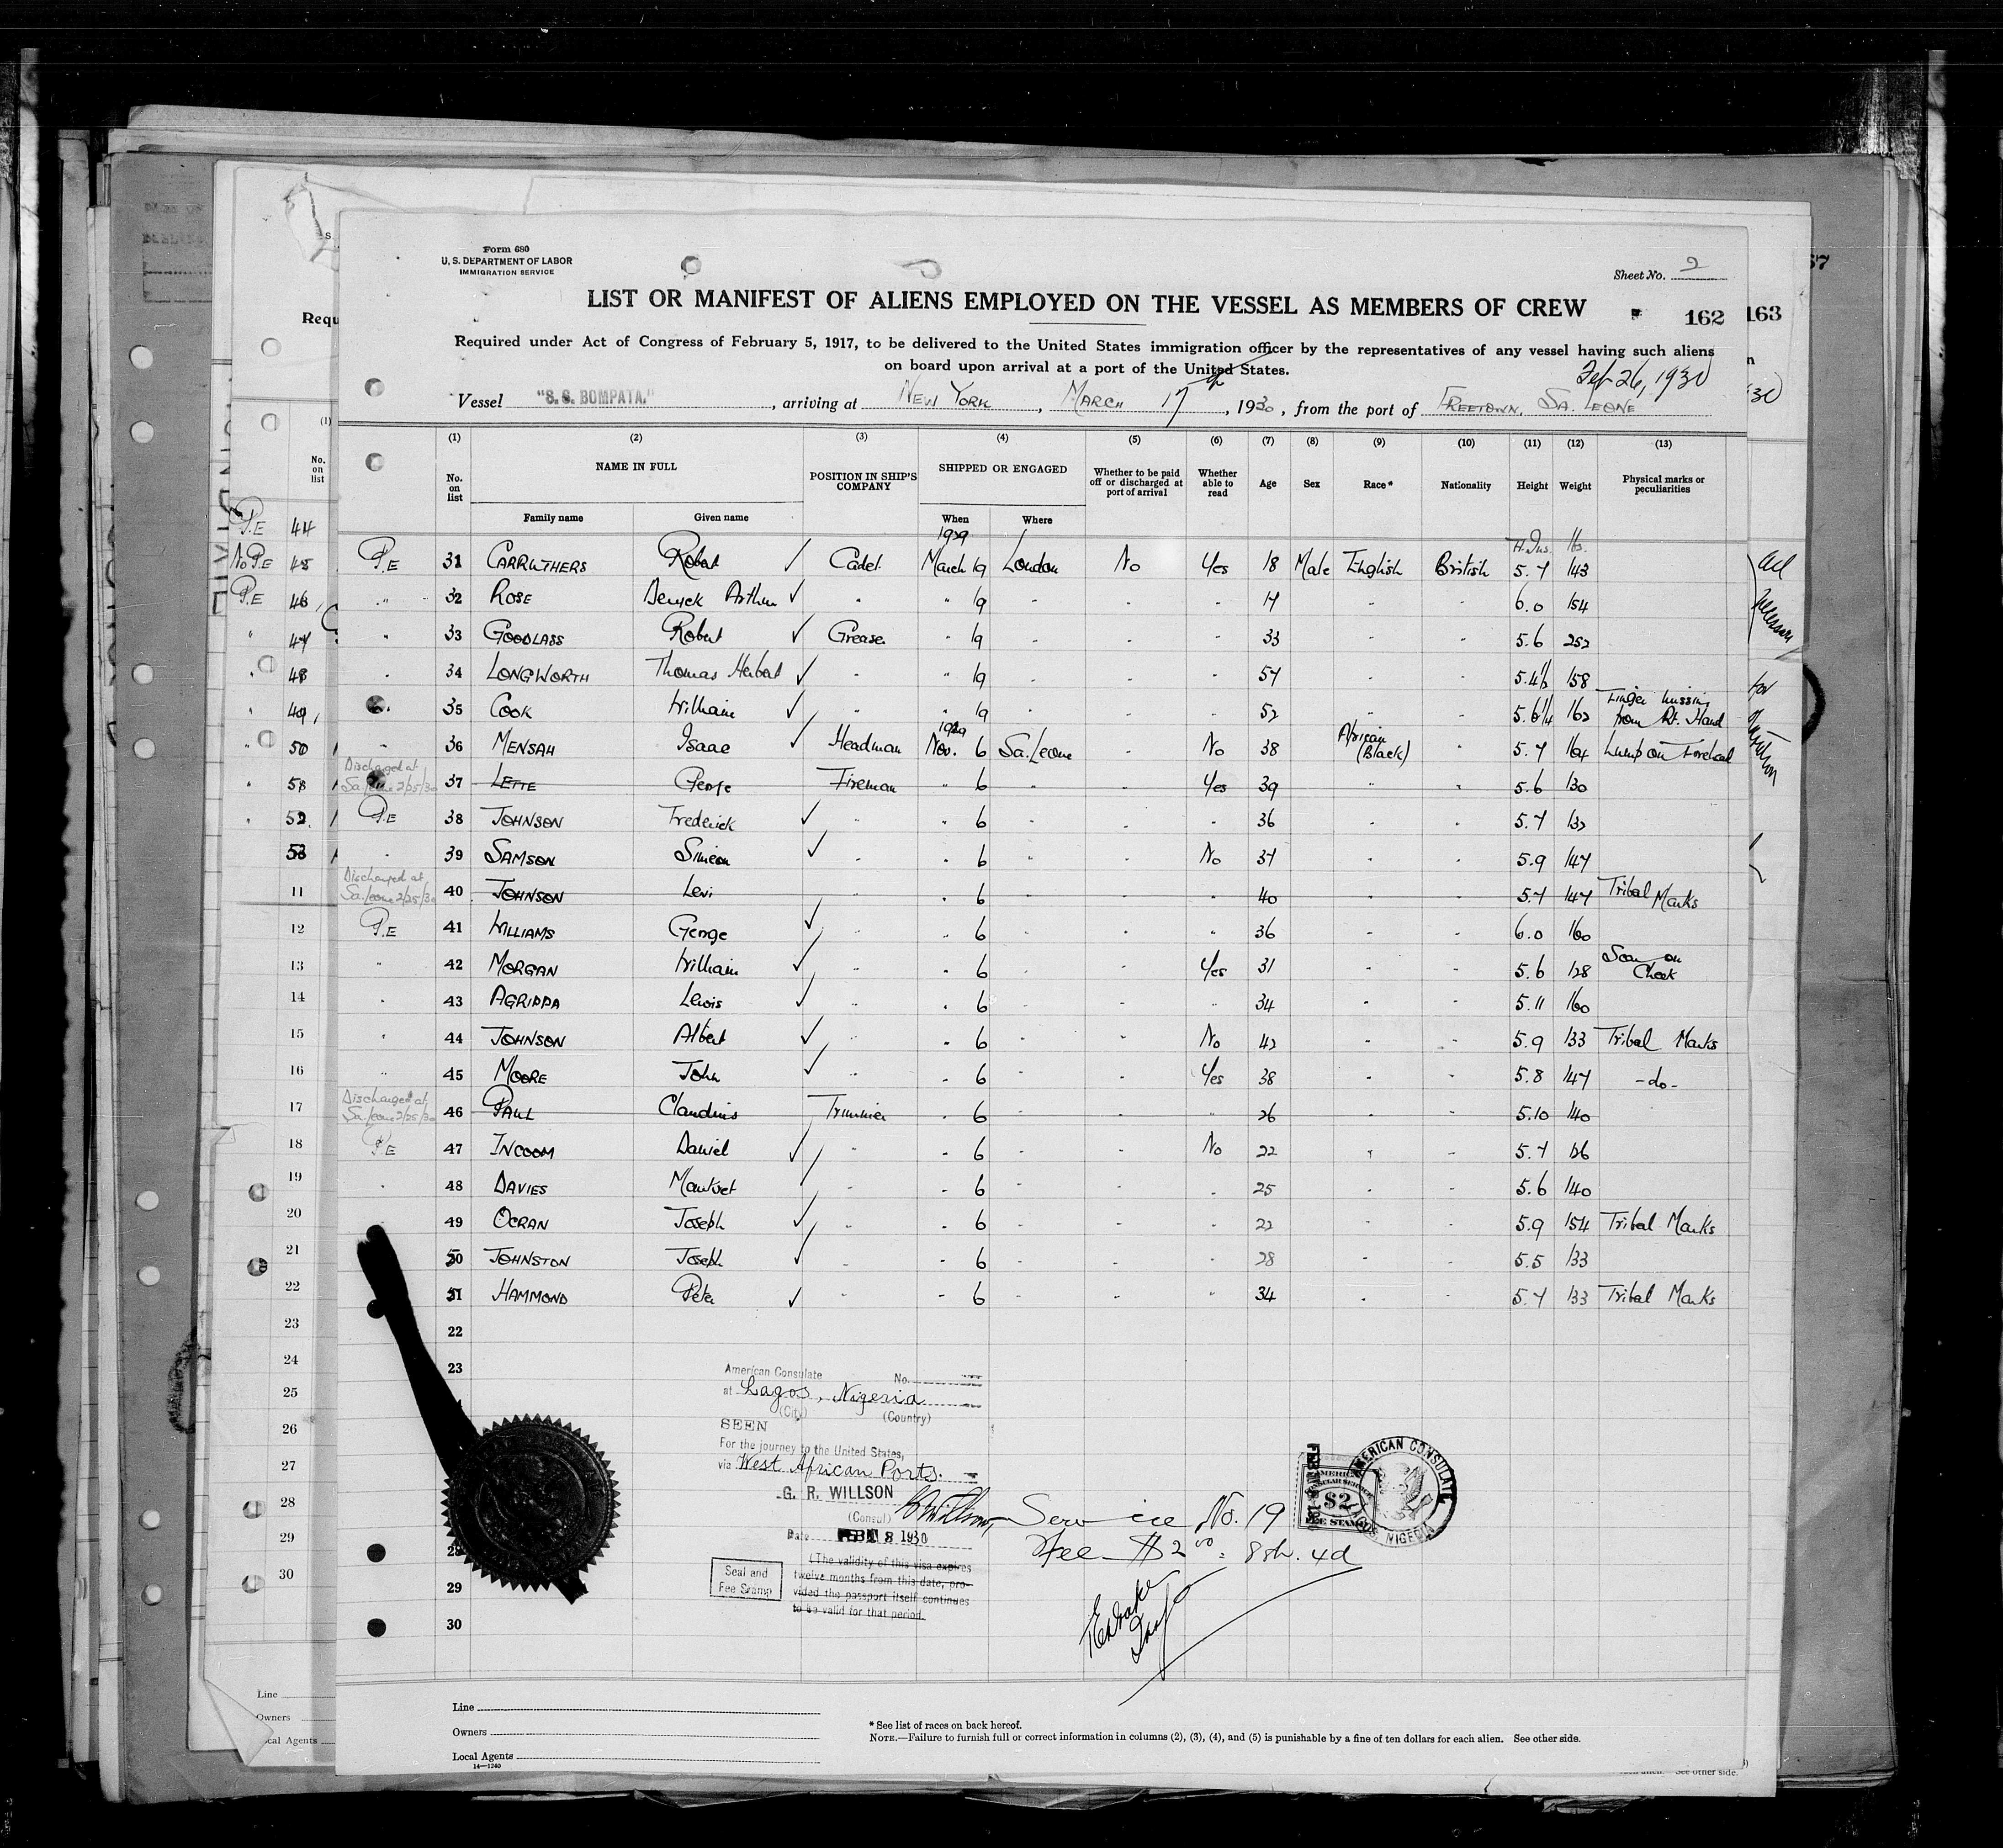 Form 680
U. S. DEPARTMENT OF LABOR
IMMIGRATION SERVICE
Sheet No. 2
LIST OR MANIFEST OF ALIENS EMPLOYED ON THE VESSEL AS MEMBERS OF CREW
162
163
Required under Act of Congress of February 5, 1917, to be delivered to the United States immigration officer by the representatives of any vessel having such aliens
on board upon arrival at a port of the United States.
Feb 26, 1930
Vessel "S.S. BOMPATA." , arriving at NEW YORK , MARCH 17th , 1930 , from the port of FREETOWN, SA. LEONE
(1) (2) (3) (4) (5) (6) (7) (8) (9) (10) (11) (12) (13)
No. on list NAME IN FULL POSITION IN SHIP'S COMPANY SHIPPED OR ENGAGED Whether to be paid off or discharged at port of arrival Whether able to read Age Sex Race* Nationality Height Weight Physical marks or peculiarities
Family name Given name When Where
1929 Ft. Ins. lbs.
P.E 31 CARRUTHERS Robert ✓ Cadet March 19 London No Yes 18 Male English British 5.7 143
" 32 ROSE Derrick Arthur ✓ " " 19 " " " 17 " " 6.0 154
" 33 GOODLASS Robert ✓ Grease " 19 " " " 33 " " 5.6 252
" 34 LONGWORTH Thomas Herbert ✓ " " 19 " " " 57 " " 5.4½ 158
" 35 COOK William ✓ " " 19 " " " 52 " " 5.6¼ 162 Finger missing from Rt. Hand
" 36 MENSAH Isaac ✓ Headman 1929 Nov. 6 Sa. Leone " No 38 African (Black) " 5.7 164 Lump on Forehead
Discharged at Sa. Leone 2/25/30 37 LETTE George Fireman " 6 " " Yes 39 " " 5.6 130
P.E 38 JOHNSON Frederick ✓ " " 6 " " " 36 " " 5.7 132
" 39 SAMSON Simeon ✓ " " 6 " " No 37 " " 5.9 147
Discharged at Sa. Leone 2/25/30 40 JOHNSON Levi " " 6 " " " 40 " " 5.7 147 Tribal Marks
P.E 41 WILLIAMS George ✓ " " 6 " " " 36 " " 6.0 160
" 42 MORGAN William ✓ " " 6 " " Yes 31 " " 5.6 128 Scar on Cheek
" 43 AGRIPPA Lewis ✓ " " 6 " " " 34 " " 5.11 160
" 44 JOHNSON Albert ✓ " " 6 " " No 42 " " 5.9 133 Tribal Marks
" 45 MOORE John ✓ " " 6 " " Yes 38 " " 5.8 147 -do-
Discharged at Sa. Leone 2/25/30 46 PAUL Claudius Trimmer " 6 " " " 26 " " 5.10 140
P.E 47 INCOOM Daniel ✓ " " 6 " " No 22 " " 5.7 126
" 48 DAVIES " " 6 " " " 25 " " 5.6 140
49 OCRAN Joseph ✓ " " 6 " " " 22 " " 5.9 154 Tribal Marks
50 JOHNSTON Joseph ✓ " " 6 " " " 28 " " 5.5 133
51 HAMMOND Peter ✓ " " 6 " " " 34 " " 5.7 133 Tribal Marks
22
23
American Consulate No.
at Lagos, Nigeria
(City) (Country)
SEEN
For the journey to the United States,
via West African Ports.
G. R. WILLSON
(Consul)
Date FEB 8 1930
(The validity of this visa expires
twelve months from this date, provided the passport itself continues
to be valid for that period.
Seal and
Fee Stamp
Service No. 19
Fee $2.00 = 8sh. 4d
AMERICAN CONSULATE
LAGOS, NIGERIA
$2
FEE STAMP
28
29
30
Line
Owners
Local Agents
14—1240
* See list of races on back hereof.
NOTE.—Failure to furnish full or correct information in columns (2), (3), (4), and (5) is punishable by a fine of ten dollars for each alien. See other side.
Requ
(1)
No. on list
P.E 44
No P.E 45
P.E 46
" 47
" 48
" 49
" 50
" 51
" 52
53
11
12
13
14
15
16
17
18
19
20
21
22
23
24
25
26
27
28
29
30
Line
Owners
cal Agents
See other side.